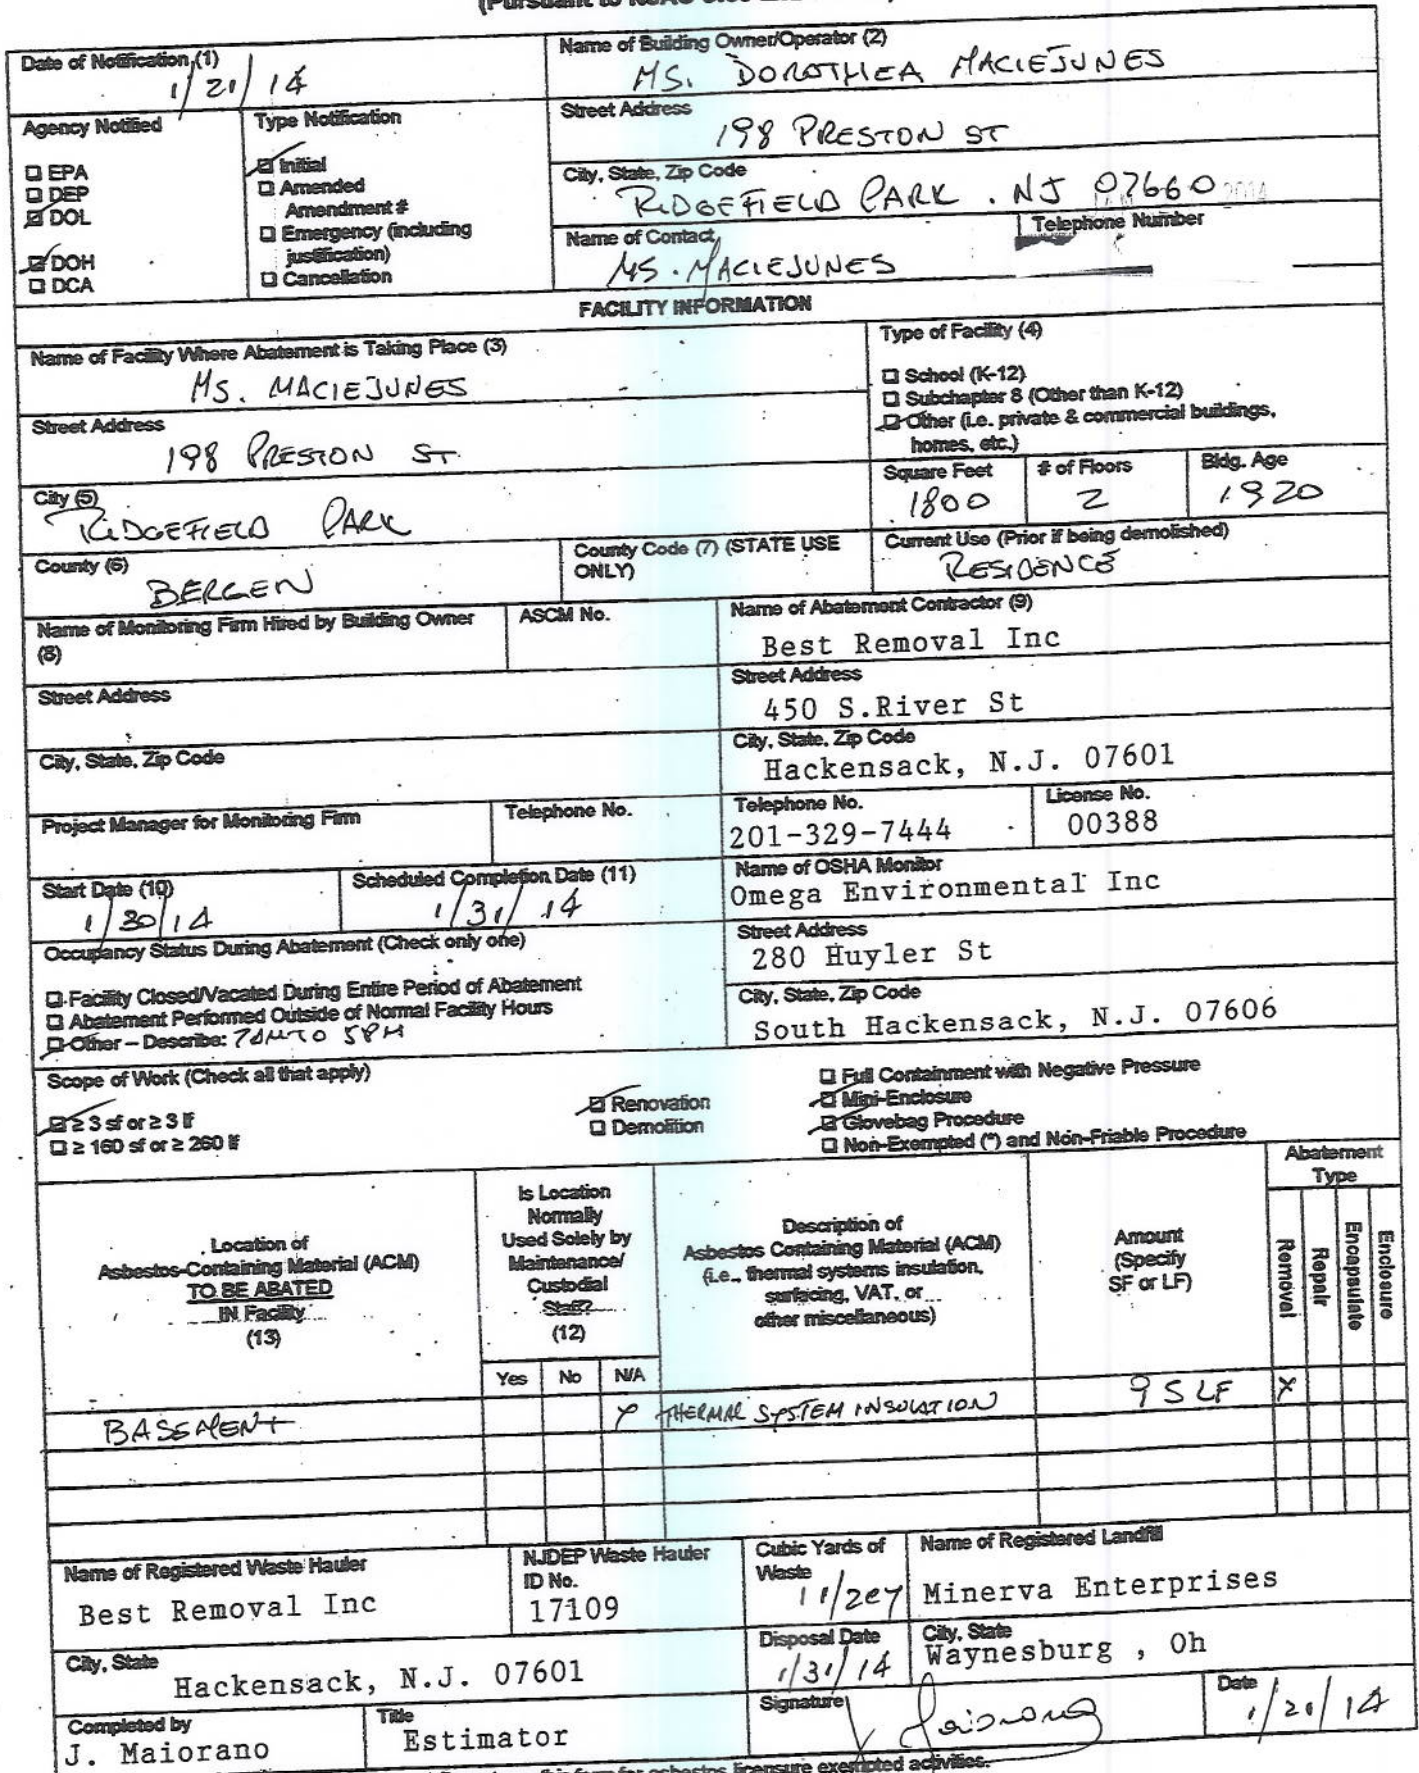 (Pursuant to NJAC
Date of Notification (1)
1/21/14
Name of Building Owner/Operator (2)
MS. DOROTHEA MACIEJUNES
Agency Notified
Type Notification
Street Address
198 PRESTON ST
EPA
DEP
DOL
DOH
DCA
Initial
Amended
Amendment #
Emergency (including
justification)
Cancellation
City, State, Zip Code
RIDGEFIELD PARK. NJ 07660
2014
Name of Contact
MS. MACIEJUNES
Telephone Number
FACILITY INFORMATION
Name of Facility Where Abatement is Taking Place (3)
MS. MACIEJUNES
Type of Facility (4)
School (K-12)
Subchapter 8 (Other than K-12)
Other (i.e. private & commercial buildings,
homes, etc.)
Street Address
198 PRESTON ST.
City (5)
RIDGEFIELD PARK
Square Feet
1800
# of Floors
2
Bldg. Age
1920
County (6)
BERGEN
County Code (7) (STATE USE
ONLY)
Current Use (Prior if being demolished)
RESIDENCE
Name of Monitoring Firm Hired by Building Owner
(8)
ASCM No.
Name of Abatement Contractor (9)
Best Removal Inc
Street Address
Street Address
450 S.River St
City, State, Zip Code
City, State, Zip Code
Hackensack, N.J. 07601
Project Manager for Monitoring Firm
Telephone No.
Telephone No.
201-329-7444
License No.
00388
Start Date (10)
1/30/14
Scheduled Completion Date (11)
1/31/14
Name of OSHA Monitor
Omega Environmental Inc
Occupancy Status During Abatement (Check only one)
Facility Closed/Vacated During Entire Period of Abatement
Abatement Performed Outside of Normal Facility Hours
Other – Describe: 7AM TO 5PM
Street Address
280 Huyler St
City, State, Zip Code
South Hackensack, N.J. 07606
Scope of Work (Check all that apply)
≥ 3 sf or ≥ 3 lf
≥ 160 sf or ≥ 260 lf
Renovation
Demolition
Full Containment with Negative Pressure
Mini-Enclosure
Glovebag Procedure
Non-Exempted (*) and Non-Friable Procedure
Location of
Asbestos-Containing Material (ACM)
TO BE ABATED
IN Facility
(13)
Is Location
Normally
Used Solely by
Maintenance/
Custodial
Staff?
(12)
Yes No N/A
Description of
Asbestos Containing Material (ACM)
(i.e., thermal systems insulation,
surfacing, VAT, or
other miscellaneous)
Amount
(Specify
SF or LF)
Abatement
Type
Removal
Repair
Encapsulate
Enclosure
BASEMENT X THERMAL SYSTEM INSULATION 95 LF X
Name of Registered Waste Hauler
Best Removal Inc
NJDEP Waste Hauler
ID No.
17109
Cubic Yards of
Waste
1 1/2cy
Name of Registered Landfill
Minerva Enterprises
City, State
Hackensack, N.J. 07601
Disposal Date
1/31/14
City, State
Waynesburg , Oh
Completed by
J. Maiorano
Title
Estimator
Signature
Date
1/21/14
this form for asbestos licensure exempted activities.